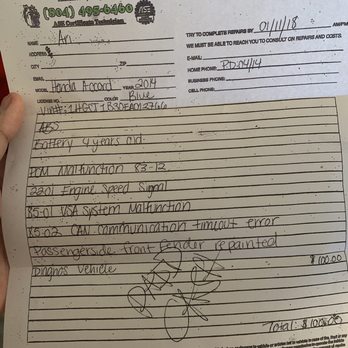 (804) 495-6460
ASE Certificate Technician
TRY TO COMPLETE REPAIRS BY 01/11/18 AM/PM
WE MUST BE ABLE TO REACH YOU TO CONSULT ON REPAIRS AND COSTS.
NAME Ari
ADDRESS
CITY ZIP
E-MAIL:
HOME PHONE: P.D. 04/14
EMAIL
BUSINESS PHONE:
MODEL Honda Accord YEAR 2014
CELL PHONE:
LICENSE NO. COLOR Blue
ABS
Battery 4 years old
PCM Malfunction 83-12
2201 Engine Speed Signal
85-01 VSA System Malfunction
85-02 CAN Communication timeout error
Passengerside front fender repainted
Diagnos Vehicle $100.00
PAID
Total: